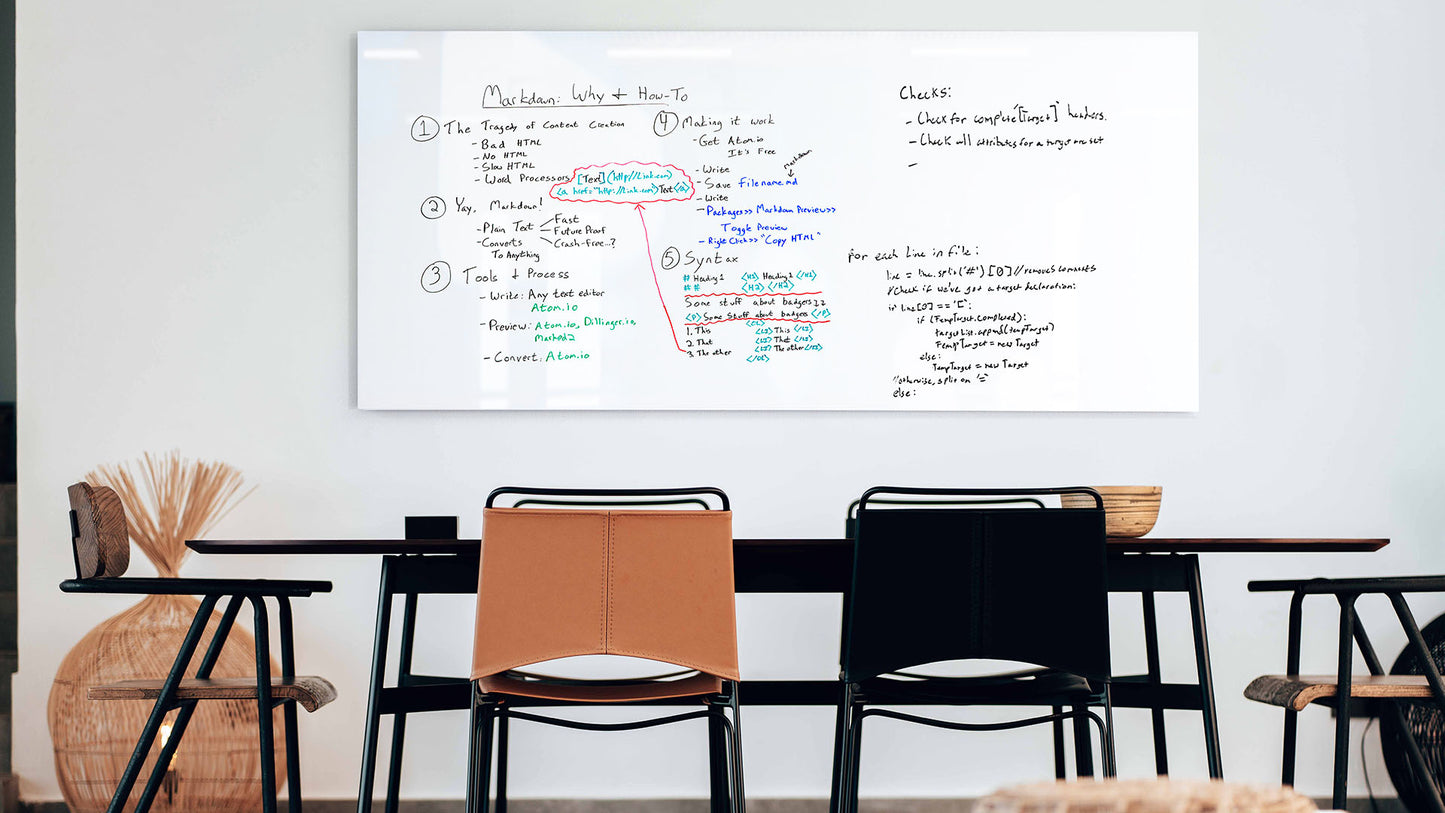 Markdown: Why & How-To
① The Tragedy of Content Creation
- Bad HTML
- No HTML
- Slow HTML
- Word Processors
[Text](http://Link.com)
<a href="http://Link.com">Text</a>
② Yay, Markdown!
- Plain Text
Fast
Future Proof
Crash-Free...?
- Converts
To Anything
③ Tools & Process
- Write: Any text editor
Atom.io
- Preview: Atom.io, Dillinger.io,
Marked2
- Convert: Atom.io
④ Making it work
- Get Atom.io
It's Free
- Write
Markdown
- Save Filename.md
- Write
- Packages>> Markdown Preview>>
Toggle Preview
- Right Click>> "Copy HTML"
⑤ Syntax
# Heading 1 <H1> Heading 1 </H1>
## <H2> </H2>
Some stuff about badgers
<P> Some Stuff about badgers </P>
<OL>
1. This <LI> This </LI>
2. That <LI> That </LI>
3. The other <LI> The other </LI>
</OL>
Checks:
- Check for complete "[Target]" headers.
- Check all attributes for a target are set
-
for each line in file:
line = line.split('#')[0] // removes comments
// Check if we've got a target declaration:
if line[0] == '[':
if (TempTarget.completed):
targetList.append(tempTarget)
TempTarget = new Target
else:
TempTarget = new Target
// otherwise, split on '='
else: